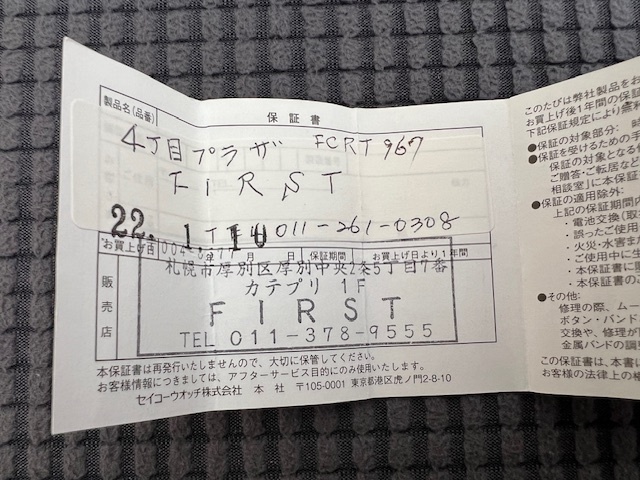 製品名(品番)
保証書
4丁目プラザ FCRT 967
FIRST
011-261-0308
22. 1. 10
お買上げ日 年 月 日 保証期間 お買上げ日より1年間
販売店
札幌市厚別区厚別中央2条5丁目7番
カテプリ 1F
FIRST
TEL 011-378-9555
本保証書は再発行いたしませんので、大切に保管してください。
お客様情報につきましては、アフターサービス目的にのみ使用いたします。
セイコーウオッチ株式会社 本 社 〒105-0001 東京都港区虎ノ門2-8-10
このたびは弊社製品をお
お買上げ後1年間の保証
下記保証規定により無
●保証の対象部分:
●保証を受けるための
保証の対象となる
ご贈答・ご転居など
相談室」に本保証
●保証の適用除外:
上記の保証期間内
・電池交換(取
・誤ったご使用
・火災・水害ま
・ご使用中に生
・本保証書に
・本保証書のご
●その他:
修理の際、ムー
ボタン・バンド
交換や、修理が
金属バンドの調
この保証書は、本書に
お客様の法律上の権